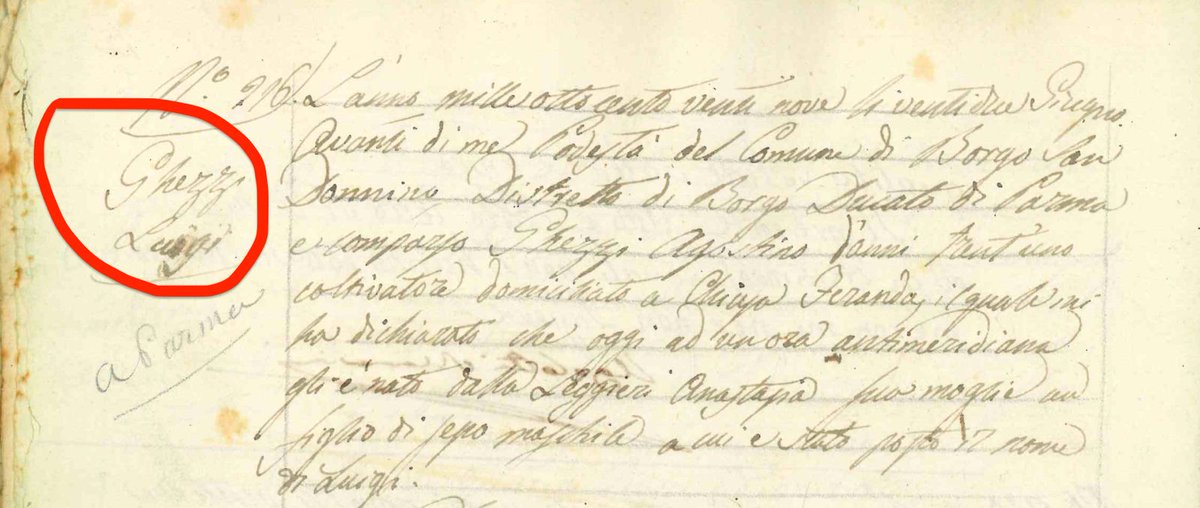 N.° 216.
Ghezzi
Luigi
a Parma
L'anno mille otto cento venti nove li ventidue Giugno
Avanti di me Podestà del Comune di Borgo San
Donnino Distretto di Borgo Ducato di Parma
e comparso Ghezzi Agostino d'anni trent'uno
coltivatore domiciliato a Chiusa Feranda, il quale mi
ha dichiarato che oggi ad un ora antimeridiana
gli è nato dalla Leggieri Anastasia sua moglie un
figlio di sesso maschile a cui e stato posto il nome
di Luigi.